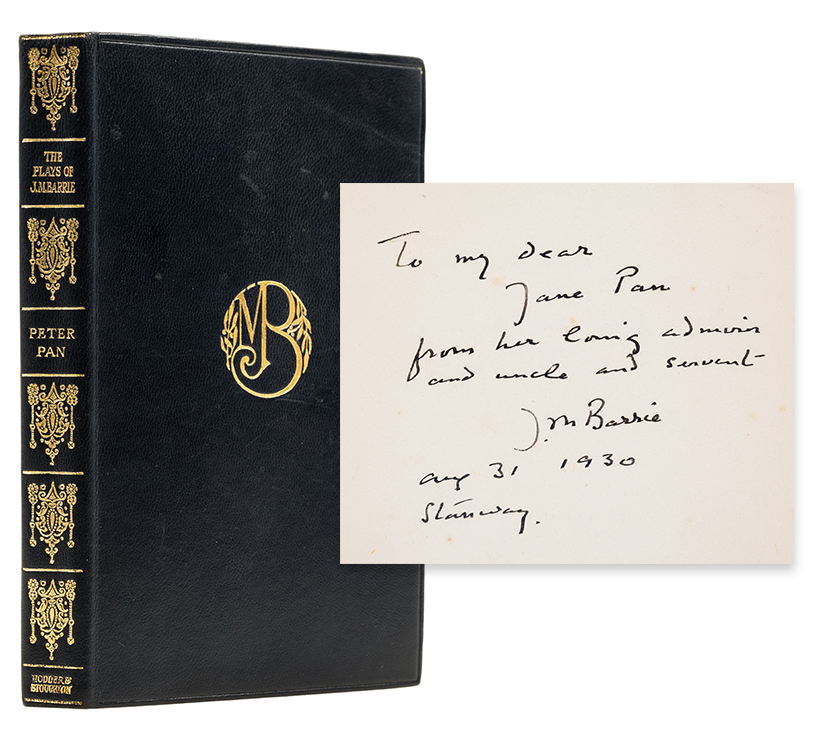 THE
PLAYS OF
J.M.BARRIE
PETER
PAN
HODDER &
STOUGHTON
JMB
To my dear
Jane Pan
from her loving admirer
and uncle and servant
J. M Barrie
aug 31 1930
Stanway.